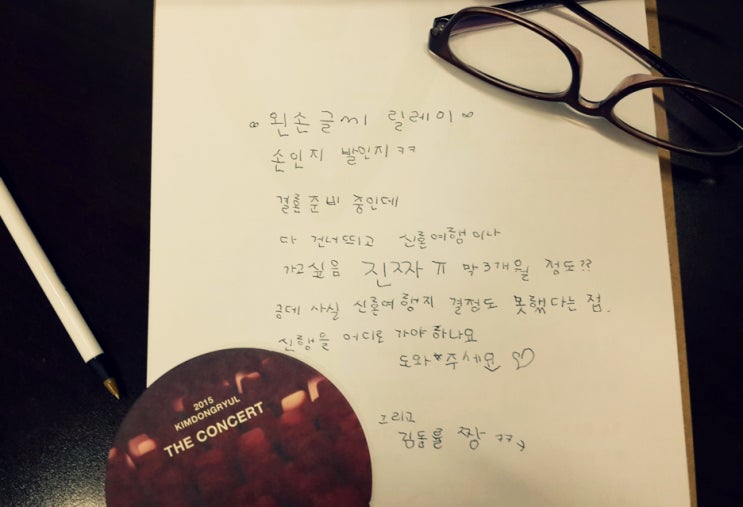 ∞ 왼손글씨 릴레이 ∞
손인지 발인지 ㅋㅋ
결혼준비 중인데
다 건너뛰고 신혼여행이나
가고싶음 진짜 ㅠ 막 3개월 정도??
근데 사실 신혼여행지 결정도 못했다는 점.
신행을 어디로 가야하나요
도와*주세요 ♡
그리고
김동률 짱 ㅋㅋ
2015
KIMDONGRYUL
THE CONCERT